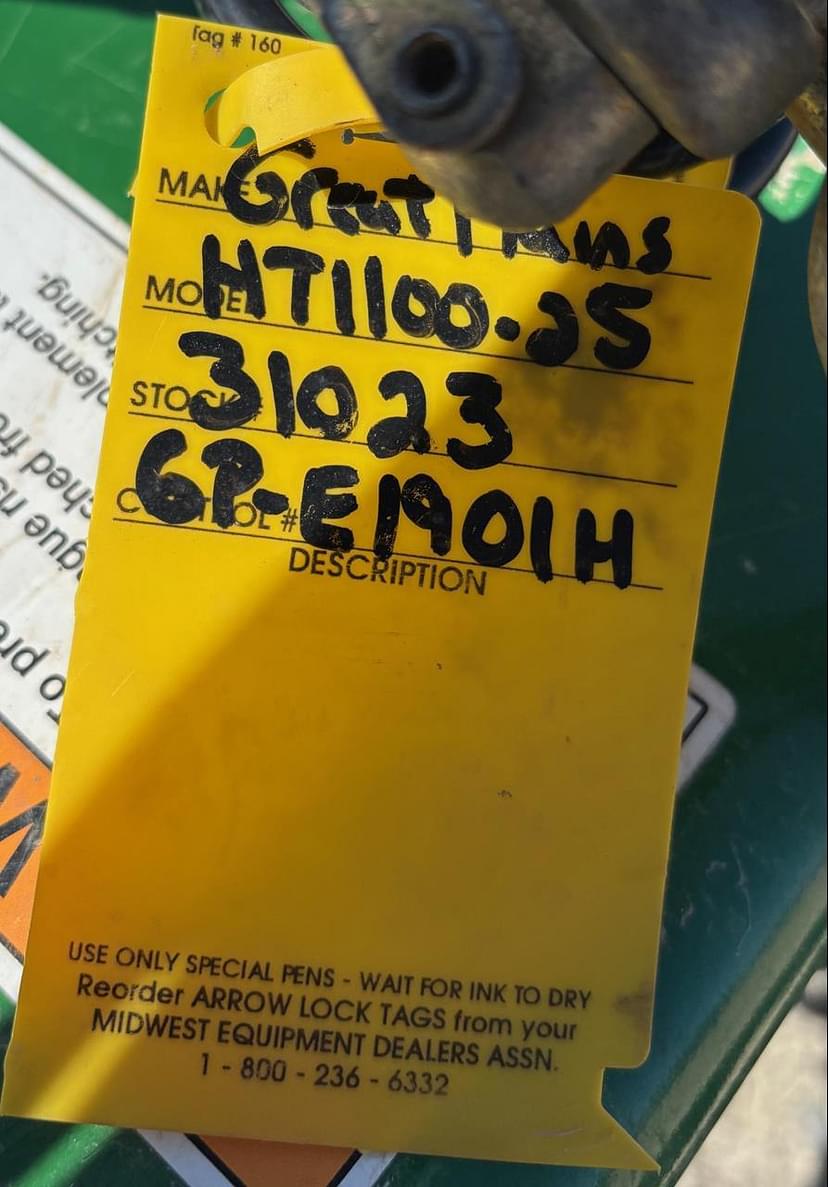 Tag # 160
MAKE Great Plains
MODEL HT1100-25
STOCK # 31023
CONTROL # GP-E1901H
DESCRIPTION
USE ONLY SPECIAL PENS - WAIT FOR INK TO DRY
Reorder ARROW LOCK TAGS from your
MIDWEST EQUIPMENT DEALERS ASSN.
1 - 800 - 236 - 6332